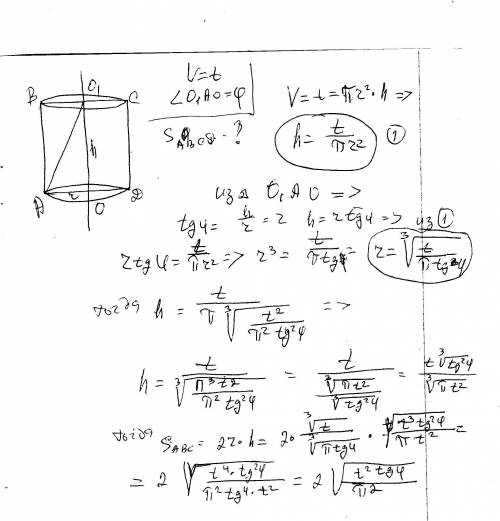 O₁
B C
h
A r O D
V=t
∠O₁AO=φ
S_ABCD - ?
V=t=πr²·h =>
h= t/(πr²) ①
из Δ O₁AO =>
tgφ= h/r = r h=r tgφ => из ①
r tgφ= t/(πr²) => r³= t/(π tgφ) = r=∛(t/(π tgφ))
тогда h = t/(π ∛(t²/(π² tg²φ))) =>
h= t/∛(π³t²/(π² tg²φ)) = t/(∛(πt²)/∛(tg²φ)) = t∛(tg²φ)/∛(πt²)
тогда S_ABC= 2r·h= 2· ∛t/∛(π tgφ) · ∛(t³ tg²φ/(πt²)) =
= 2 ∛(t⁴·tg²φ/(π² tgφ·t²)) = 2 ∛(t² tgφ/π²)